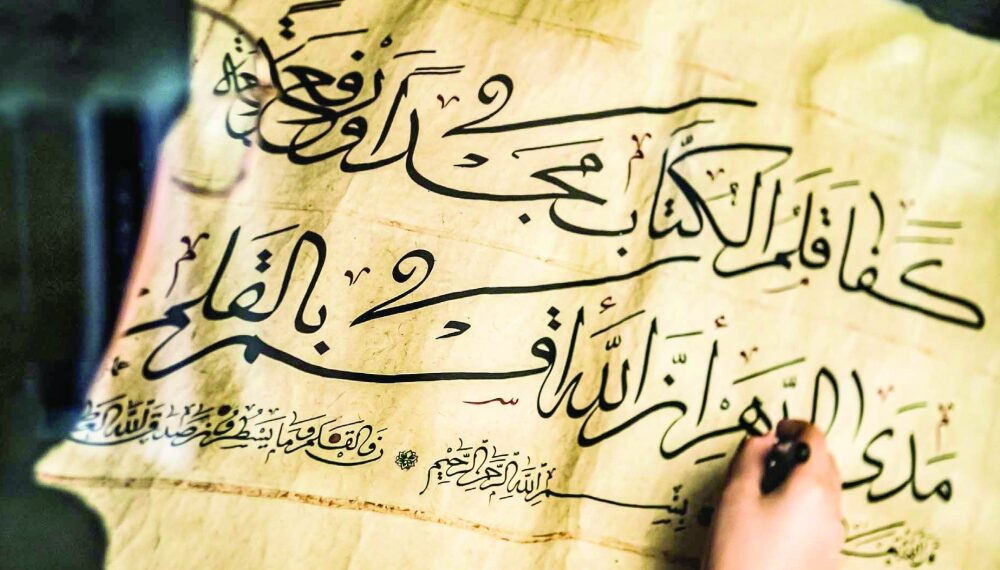 كفا قلم الكتاب مجدا ورفعة
مدى الدهر أن الله أقسم بالقلم
بسم الله الرحمن الرحيم
ن والقلم وما يسطرون صدق الله العظيم